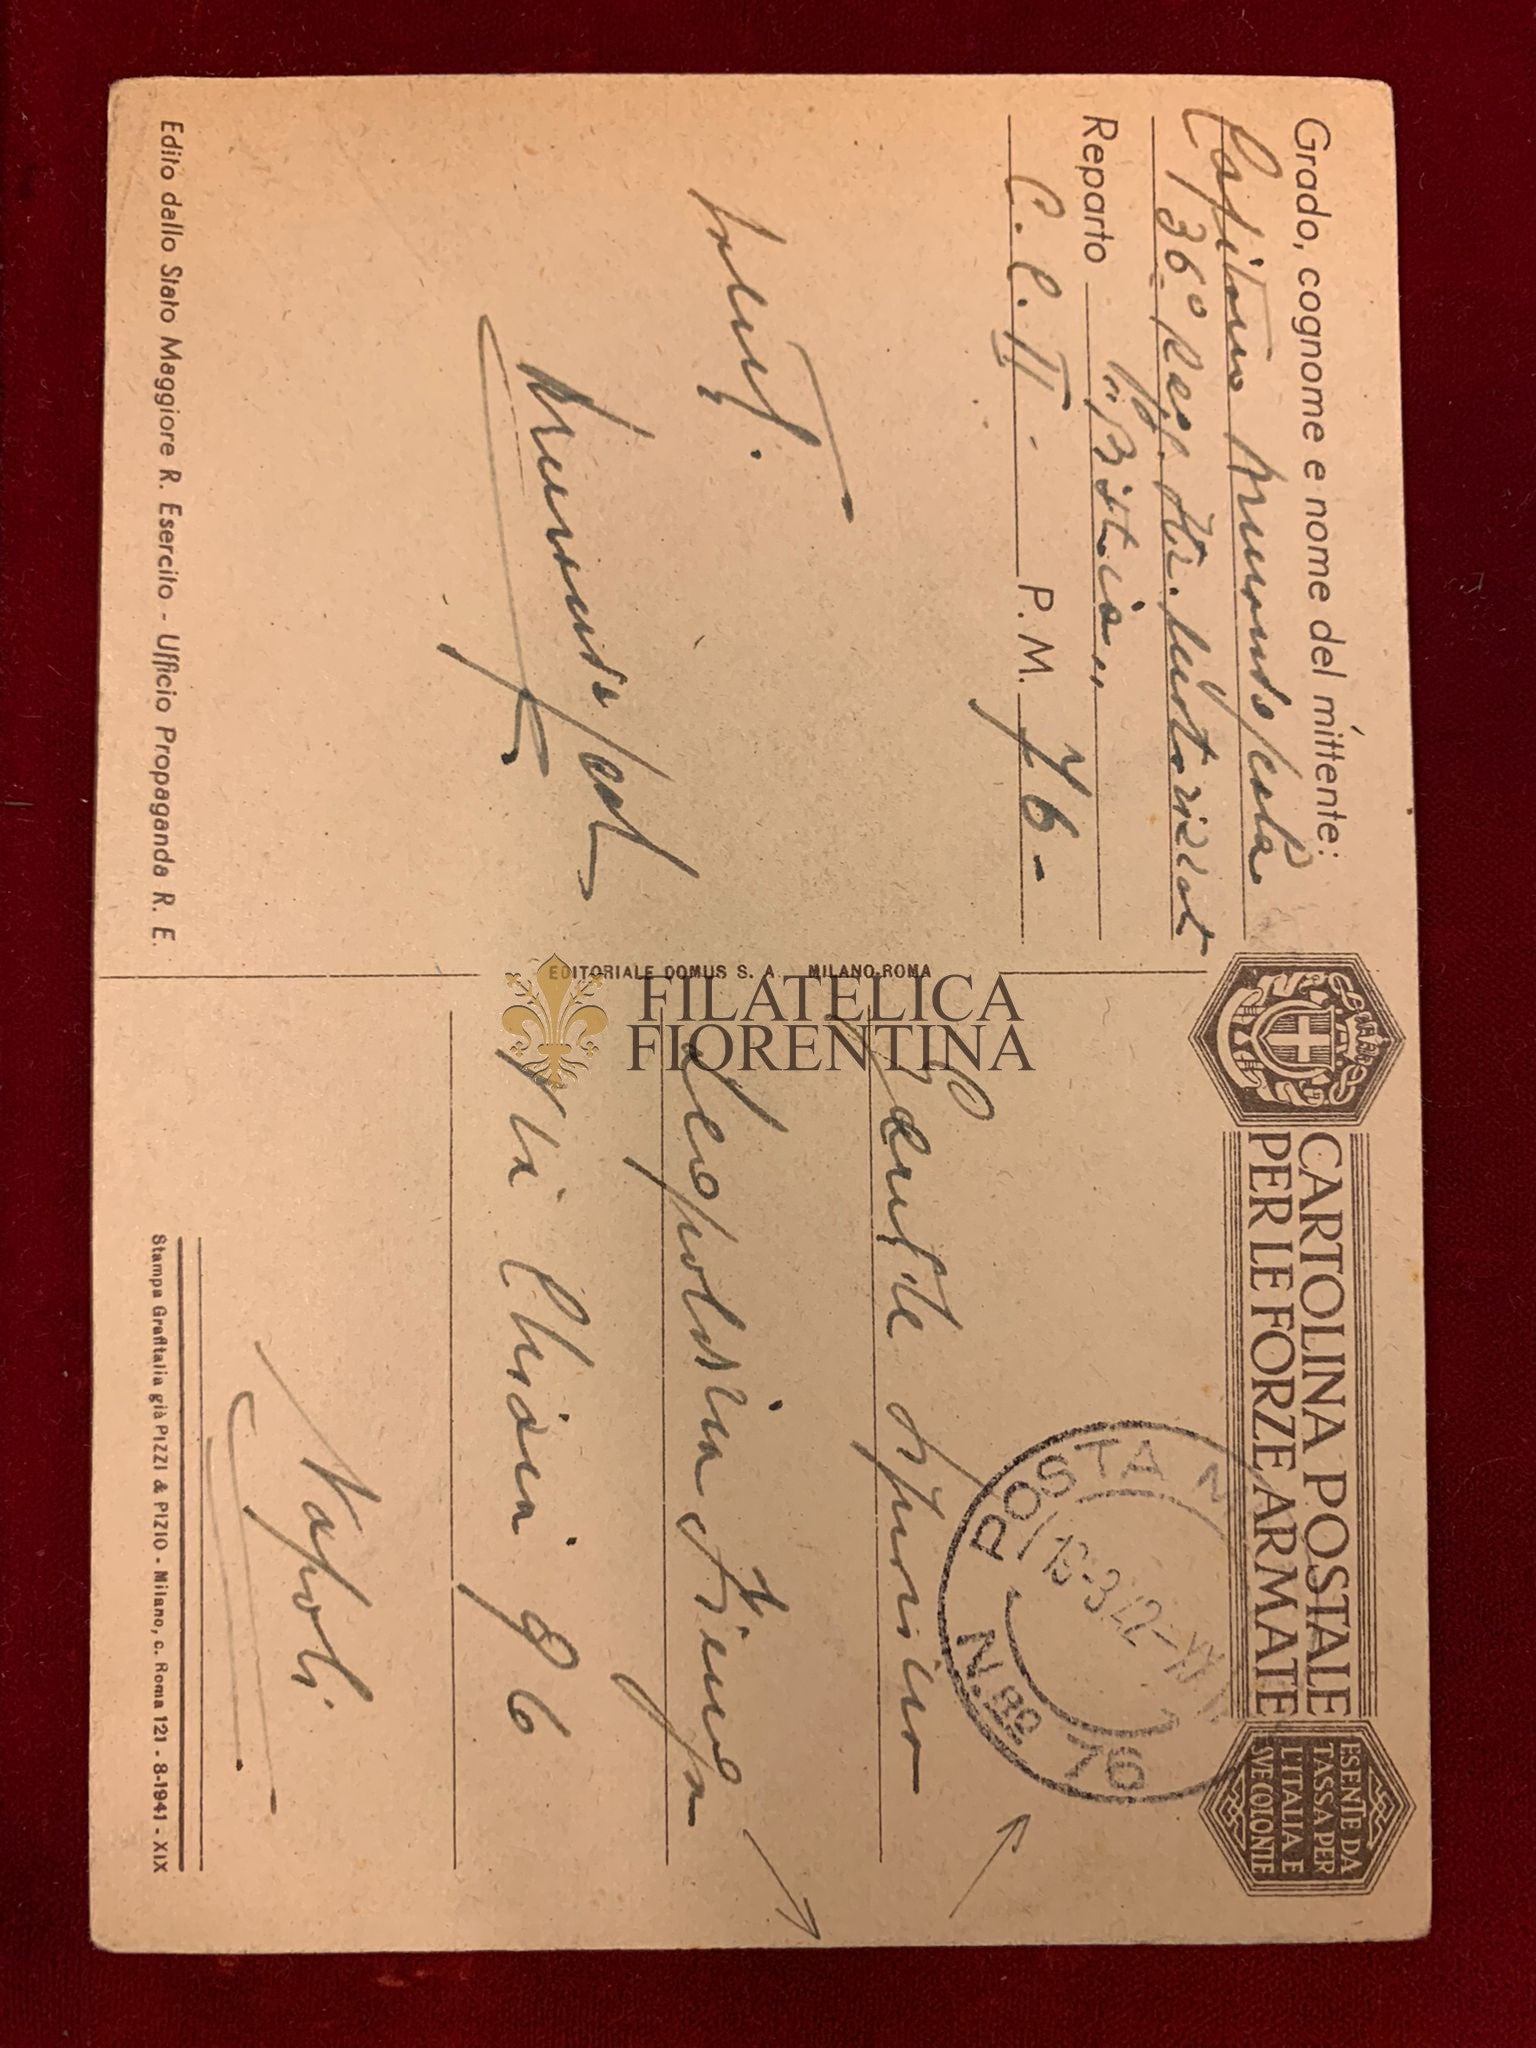 Grado, cognome e nome del mittente:
Capitano
36° Regg. Ftr. Motorizzat
Reparto "Pistoia"
C.C.II - P.M. 76 -
Saluti.
Edito dallo Stato Maggiore R. Esercito - Ufficio Propaganda R. E.
EDITORIALE DOMUS S. A. MILANO-ROMA
FILATELICA
FIORENTINA
CARTOLINA POSTALE
PER LE FORZE ARMATE
ESENTE DA
TASSA PER
L'ITALIA E
SVE COLONIE
POSTA M
N. 82
76
13-3-42-XX
Gentile
Leopoldina
Via Chiaia 96
Napoli
Stampa Grafitalia già PIZZI & PIZIO - Milano, c. Roma 121 - 8-1941 - XIX